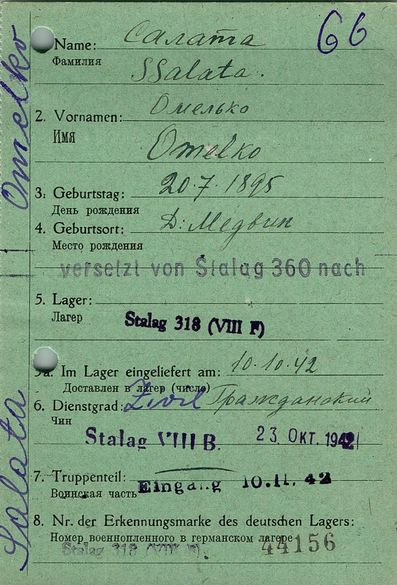 66
Name: Салата
Фамилия
SSalata.
2. Vornamen: Омелько
Имя
Omelko
3. Geburtstag: 20.7.1895
День рождения
4. Geburtsort: Д. Медвин
Место рождения
versetzt von Stalag 360 nach
5. Lager:
Лагер
Stalag 318 (VIII F)
5a. Im Lager eingeliefert am: 10.10.42
Доставлен в лагер (число)
6. Dienstgrad: Zivil Гражданский
Чин
Stalag VIII B. 23. ОКТ. 1942
7. Truppenteil:
Воинская часть Eingang 10.11.42
8. Nr. der Erkennungsmarke des deutschen Lagers:
Номер военнопленного в германском лагере
Stalag 318 (VIII F) 44156
Salata Omelko